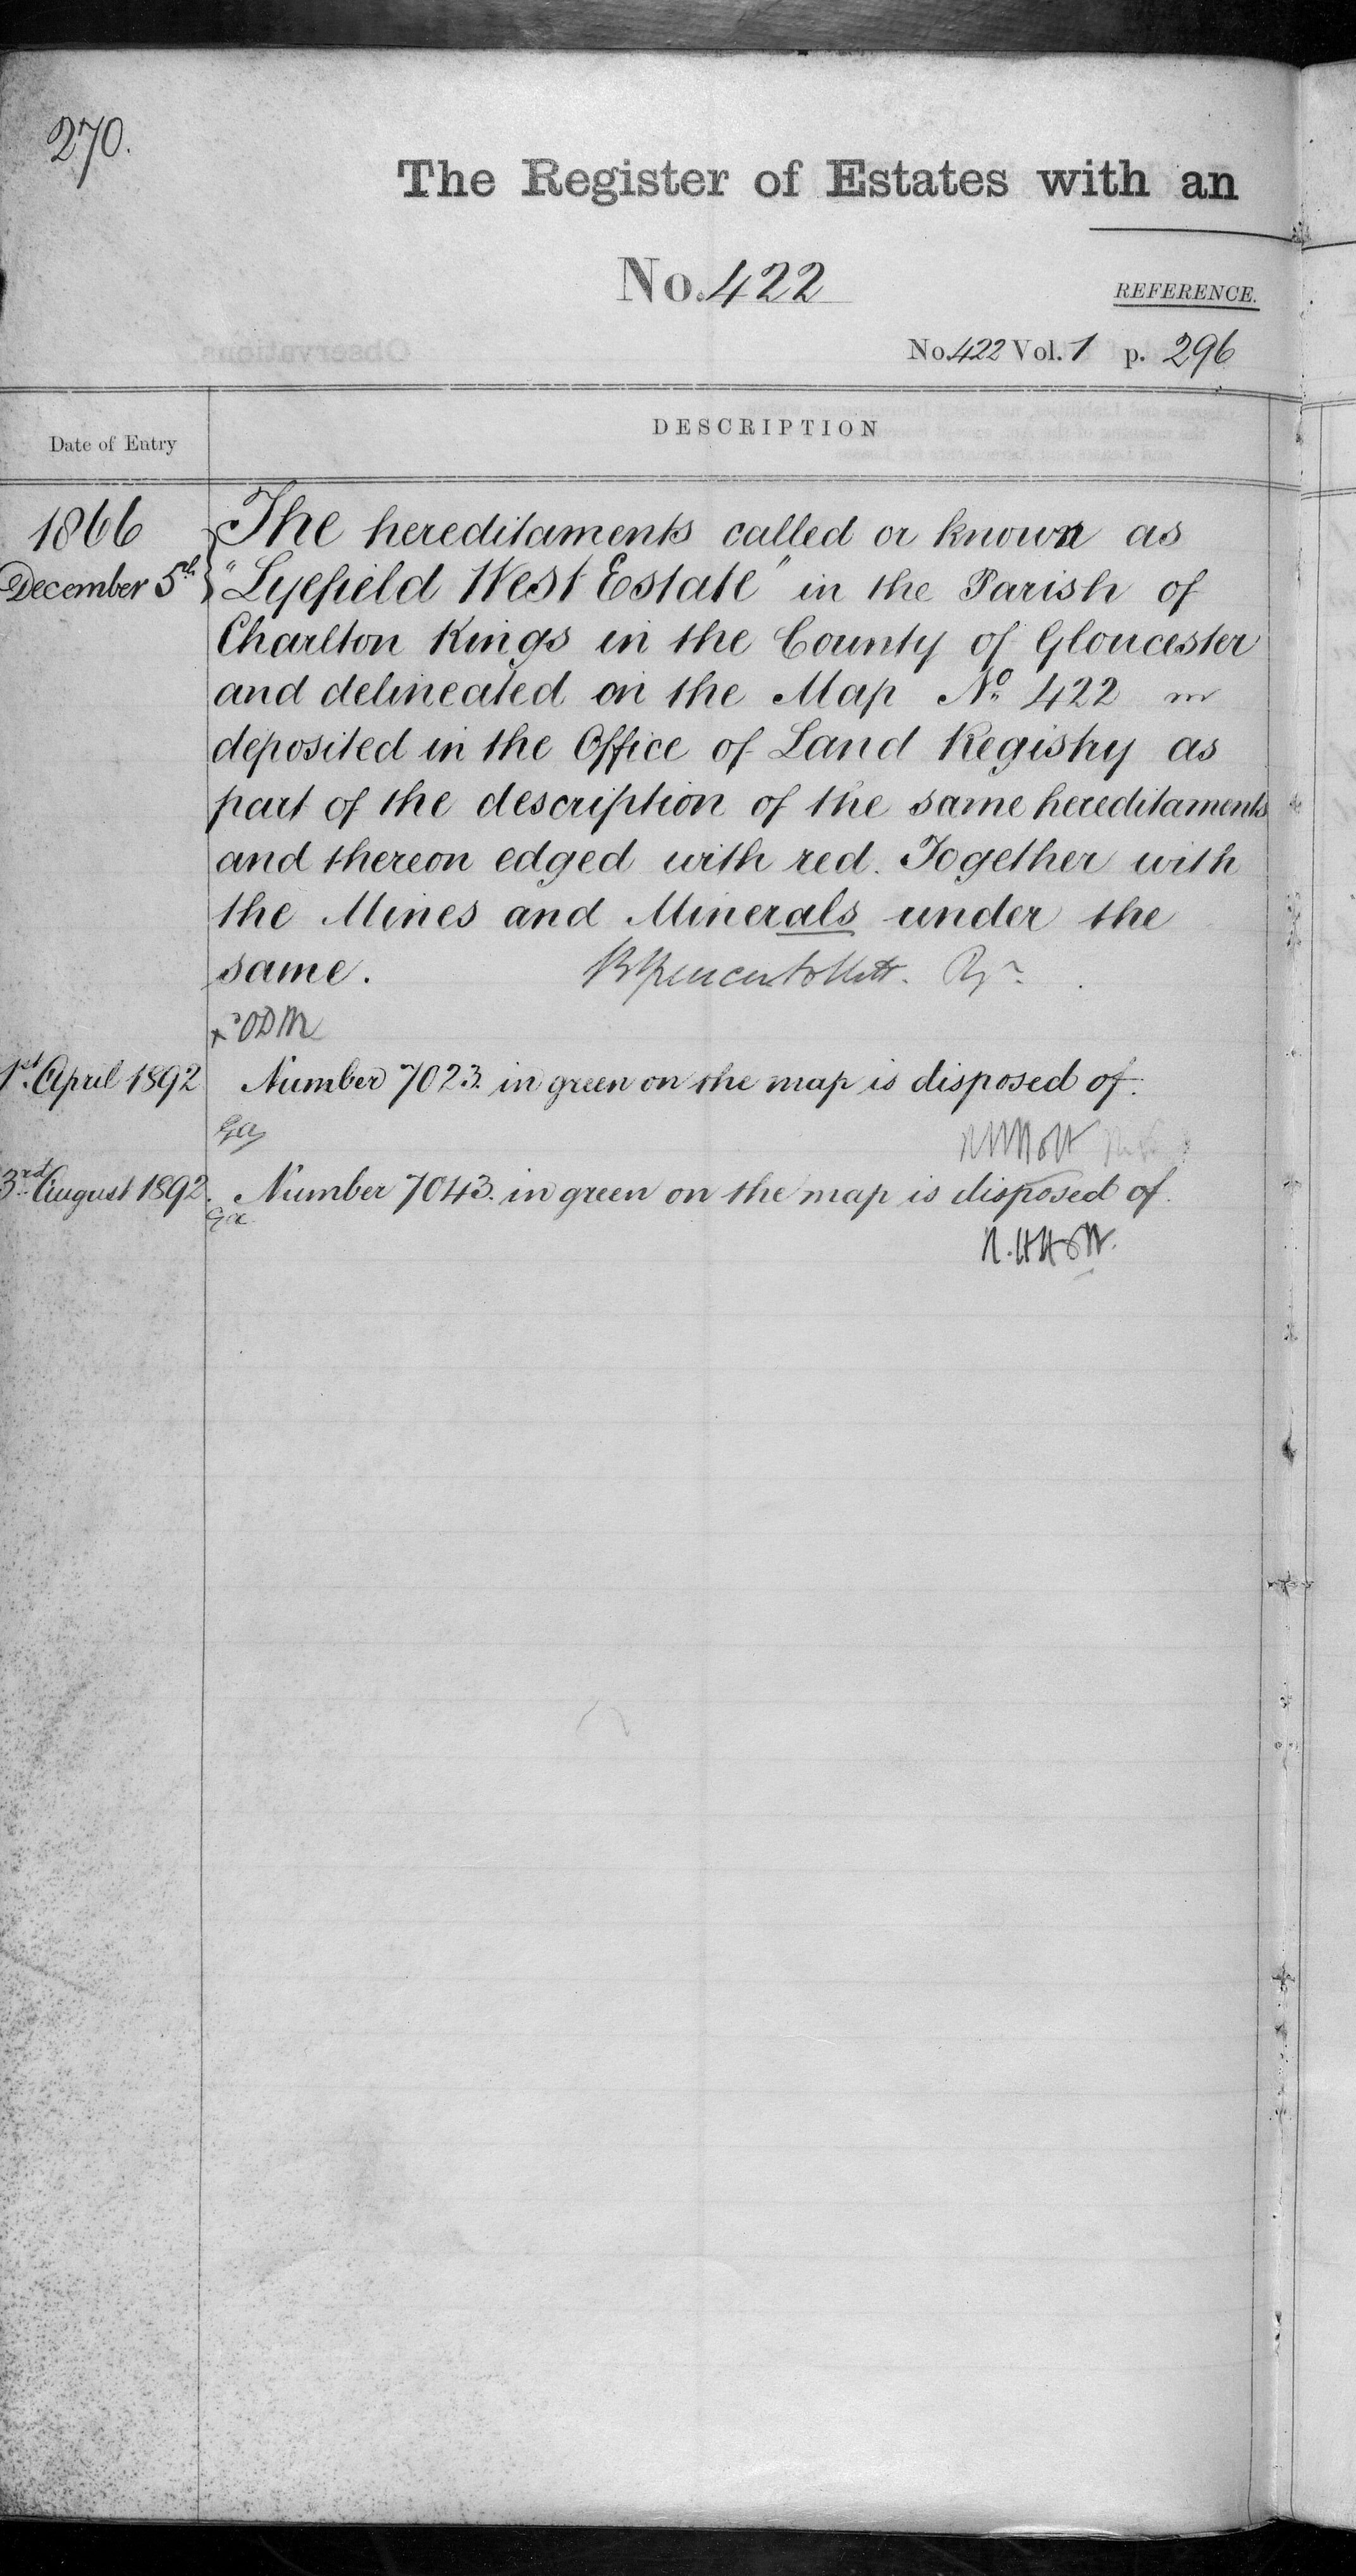 270.
The Register of Estates with an
No. 422
REFERENCE.
No. 422 Vol. 1 p. 296
Date of Entry
DESCRIPTION
1866
December 5th
The hereditaments called or known as
"Lyefield West Estate" in the Parish of
Charlton Kings in the County of Gloucester
and delineated on the Map No. 422
deposited in the Office of Land Registry as
part of the description of the same hereditaments
and thereon edged with red. Together with
the Mines and Minerals under the
same.
1st April 1892
Number 7023. in green on the map is disposed of.
3rd August 1892.
Number 7043. in green on the map is disposed of.